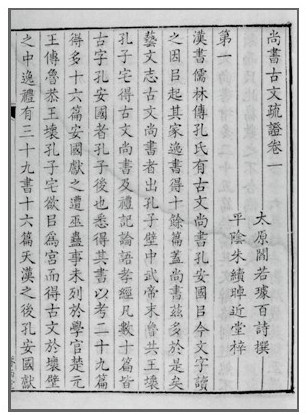 尚書古文疏證卷一
太原閻若璩百詩撰
平陰朱續晫近堂梓
第一
漢書儒林傳孔氏有古文尚書孔安國㠯今文字讀
之因㠯起其家逸書得十餘篇蓋尚書茲多於是矣
藝文志古文尚書者出孔子壁中武帝末魯共王壞
孔子宅得古文尚書及禮記論語孝經凡數十篇皆
古字孔安國者孔子後也悉得其書以考二十九篇
得多十六篇安國獻之遭巫蠱事未列於學官楚元
王傳魯恭王壞孔子宅欲㠯為宮而得古文於壞壁
之中逸禮有三十九書十六篇天漢之後孔安國獻